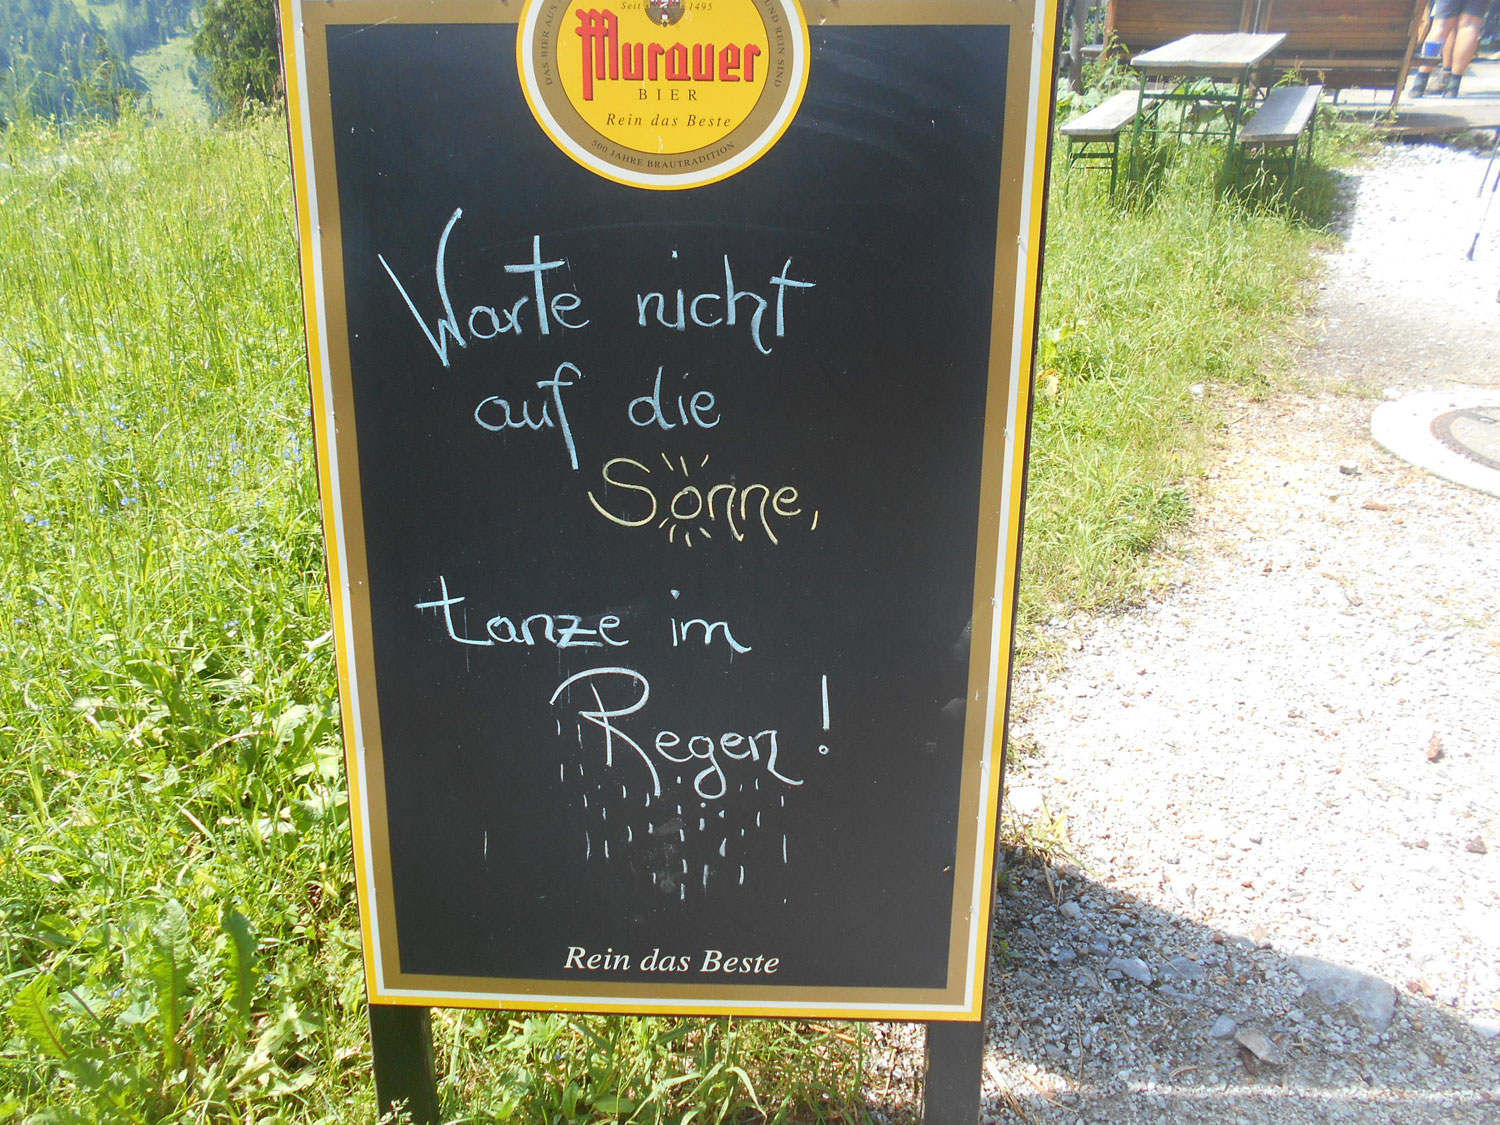 Seit 1495
DAS BIER AUS
UND REIN SIND
Murauer
BIER
Rein das Beste
500 JAHRE BRAUTRADITION
Warte nicht
auf die
Sonne,
tanze im
Regen!
Rein das Beste